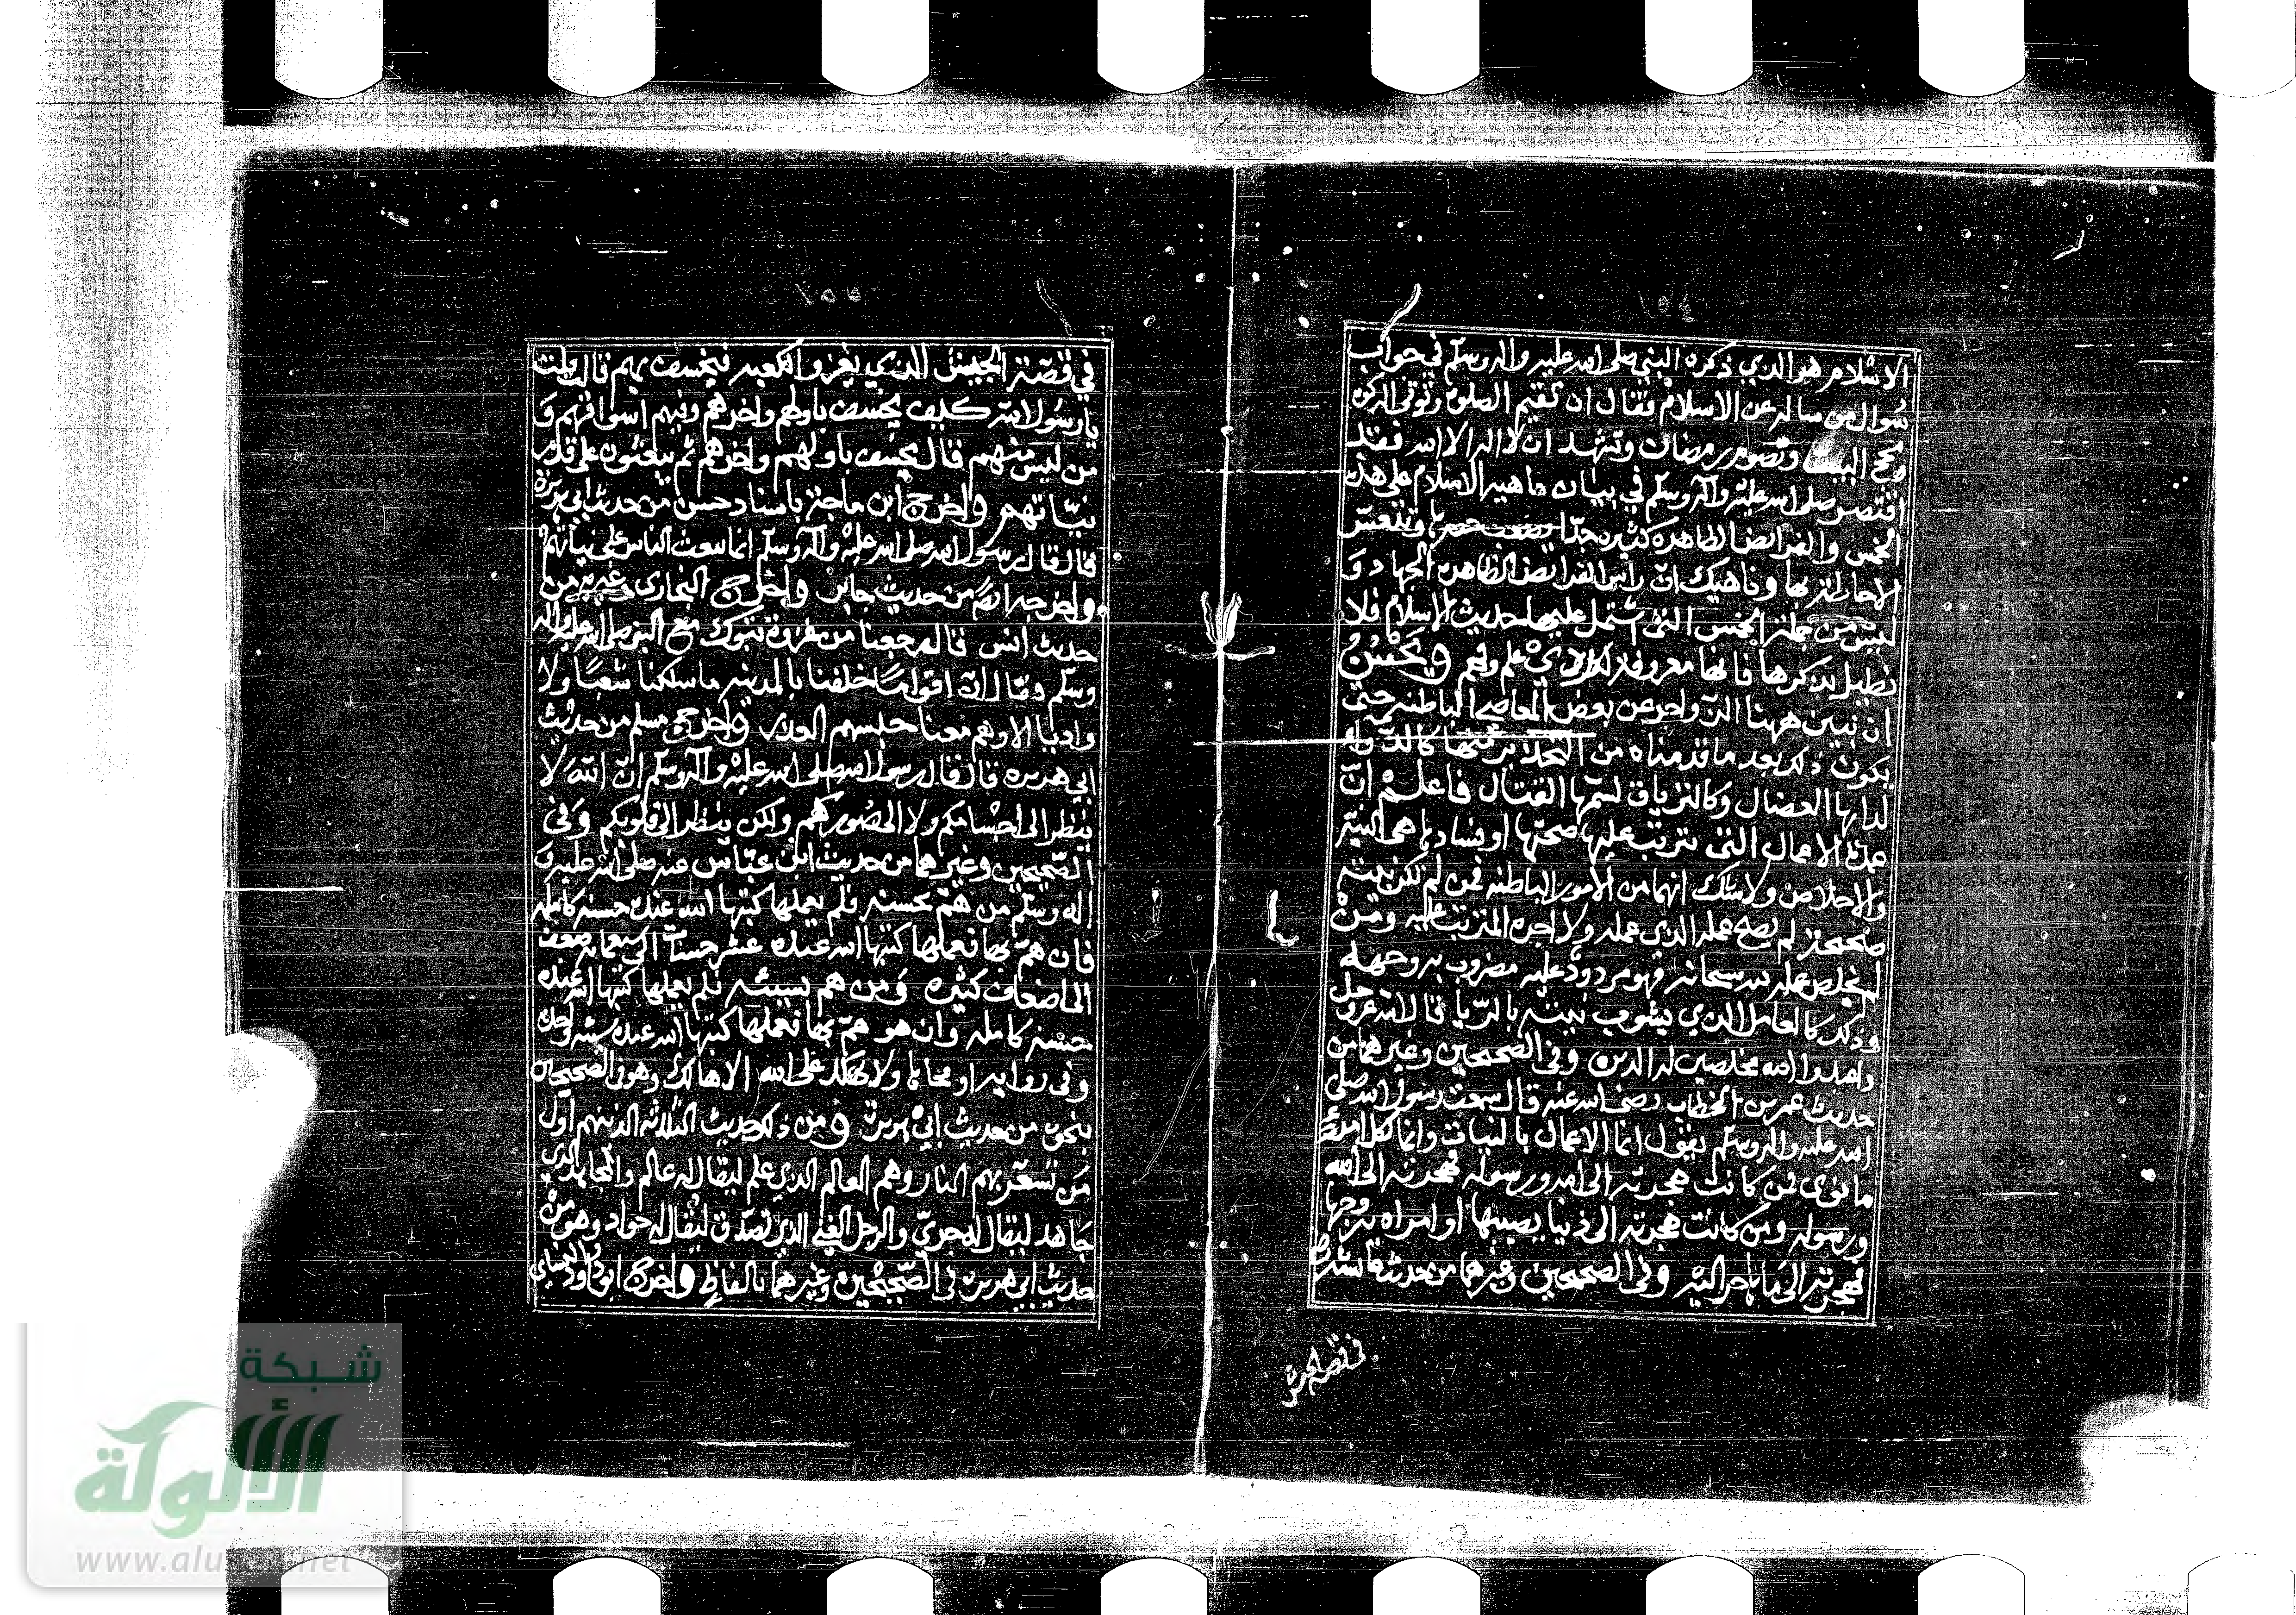 ١٥٤
الاسلام هو الذي ذكره النبي صلى الله عليه واله وسلم في جواب
سوال من ساله عن الاسلام فقال ان تقيم الصلوة وتوتي الزكوة
وتحج البيت وتصوم رمضان وتشهد ان لا اله الا الله فقد
اقتصر صلى الله عليه وآله وسلم في بيان ماهية الاسلام على هذه
الخمس والفرايض الظاهره كثيره جدا وتتعسر
الاحاطة بها وناهيك ان راس الفرائض الظاهره الجهاد و
ليس من جملة الخمس التي اشتمل عليها حديث الاسلام فلا
نطيل بذكرها فانها معروفة لكل ذي علم وفهم ويحسن
ان نبين ههنا الزواجر عن بعض المعاصي الباطنه حتى
يكون ذلك بعد ما قدمناه من التحذير منها كالدواء
لدائها العضال وكالترياق لسمها القتال فاعلم ان
عمدة الاعمال التي تترتب عليها صحتها او فسادها هي النية
والاخلاص ولا شك انهما من الامور الباطنه فمن لم تكن نيته
صحيحة لم يصح عمله الذي عمله ولا اجره المترتب عليه ومن
لم يخلص عمله لله سبحانه فهو مردود عليه مضروب به وجهه
وذلك كالعامل الذي يشوب نيته بالريا قال الله عز وجل
واعبدوا الله مخلصين له الدين وفي الصحيحين وغيرهما من
حديث عمر بن الخطاب رضي الله عنه قال سمعت رسول الله صلى
الله عليه واله وسلم يقول انما الاعمال بالنيات وانما لكل امرئ
ما نوى فمن كانت هجرته الى الله ورسوله فهجرته الى الله
ورسوله ومن كانت هجرته الى دنيا يصيبها او امراه يتزوجها
فهجرته الى ما هاجر اليه وفي الصحيحين وغيرهما من حديث عايشة
في قصة الجيش
١٥٥
في قصة الجيش الذي يغزو الكعبه فيخسف بهم قالت قلت
يا رسول الله كيف يخسف باولهم واخرهم وفيهم اسواقهم و
من ليس منهم قال يخسف باولهم واخرهم ثم يبعثون على قدر
نياتهم واخرج ابن ماجة باسناد حسن من حديث ابي هريرة
قال قال رسول الله صلى الله عليه وآله وسلم انما يبعث الناس على نياتهم
واخرجه ايضا من حديث جابر واخرج البخارى وغيره من
حديث انس قال رجعنا من غزوة تبوك مع النبي صلى الله عليه واله
وسلم وقال ان اقواما خلفنا بالمدينه ما سلكنا شعبا ولا
واديا الا وهم معنا حبسهم العذر واخرج مسلم من حديث
ابي هريره قال قال رسول الله صلى الله عليه وآله وسلم ان الله لا
ينظر الى اجسامكم ولا الى صوركم ولكن ينظر الى قلوبكم وفي
الصحيحين وغيرهما من حديث ابن عباس عنه صلى الله عليه و
اله وسلم من هم بحسنه فلم يعملها كتبها الله عنده حسنه كامله
فان هم بها فعملها كتبها الله عنده عشر حسنات الى سبعمايه ضعف
الى اضعاف كثيره ومن هم بسيئه فلم يعملها كتبها الله عنده
حسنه كامله وان هو هم بها فعملها كتبها الله عنده سيئه واحده
وفي روايه او محاها ولا يهلك على الله الا هالك وهو في الصحيحين
بنحوه من حديث ابي هريرة ومن ذلك حديث الثلاثة الذينهم اول
من تسعر بهم النار وهم العالم الذي علم ليقال له عالم والمجاهد الذي
جاهد ليقال له جريّ والرجل الغني الذي تصدق ليقال له جواد وهو من
حديث ابي هريره في الصحيحين وغيرهما بالفاظ واخرج ابو داود والنسائي
شبكة
الألوكة